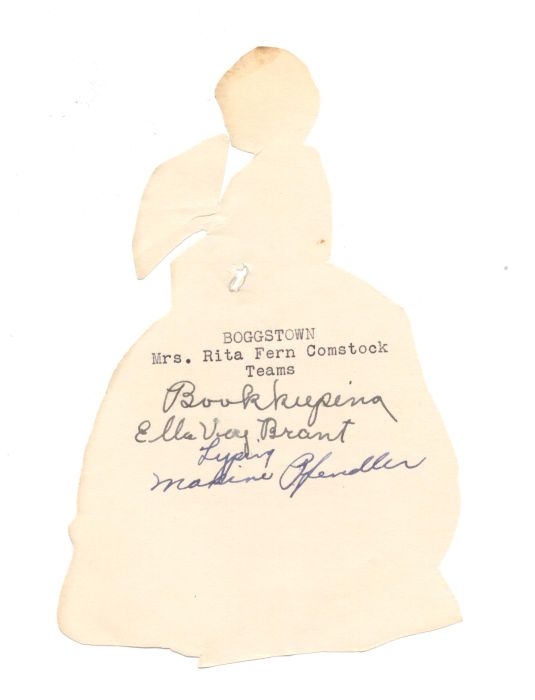 BOGGSTOWN
Mrs. Rita Fern Comstock
Teams
Bookkeeping
Ella Vay Brant
Typing
Maxine Pfendler